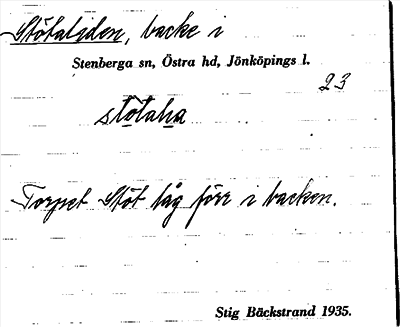 Stötaliden, backe i
Stenberga sn, Östra hd, Jönköpings l.
23
Torpet Stöt låg förr i backen.
Stig Bäckstrand 1935.